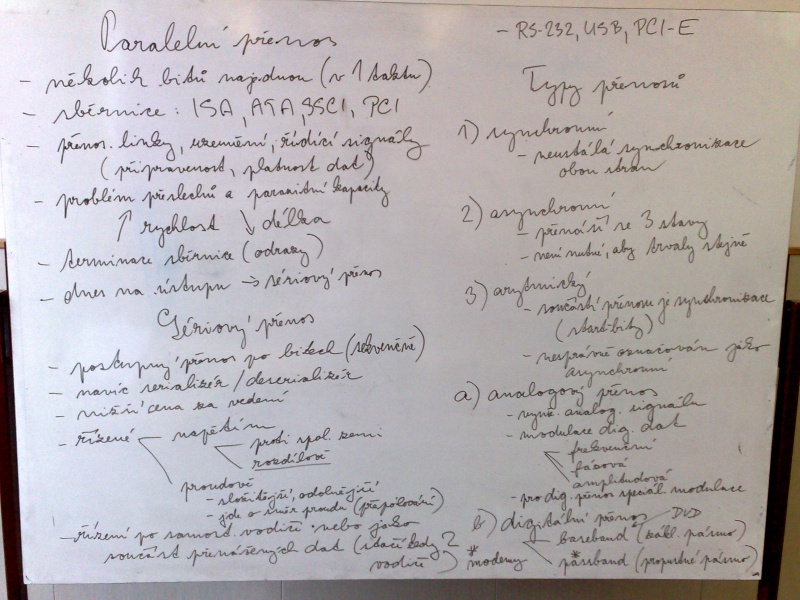 Paralelní přenos
- několik bitů najednou (v 1 taktu)
- sběrnice: ISA, ATA, SSCI, PCI
- přenos. linky, uzemnění, řídící signály
(připravenost, platnost dat)
- problém přeslechů a parazitní kapacity
↑ rychlost ↘ délka
- terminace sběrnice (odrazy)
- dnes na ústupu → sériový přenos
Sériový přenos
- postupný přenos po bitech (sekvenčně)
- navíc serializér / deserializér
- nižší cena za vedení
- řízené napětím
proti spol. zemi
rozdílově
proudově
- složitější, odolnější
- jde o směr proudu (přepólování)
- řízení po samost. vodiči nebo jako
součást přenášených dat (stačí tedy 2
vodiče)
- RS-232, USB, PCI-E
Typy přenosů
1) synchronní
- neustálá synchronizace
obou stran
2) asynchronní
- přenáší se 3 stavy
- není nutné, aby trvaly stejně
3) arytmický
- součástí přenosu je synchronizace
(start-bity)
- nesprávně označován jako
asynchronní
a) analogový přenos
- využ. analog. signálu
- modulace dig. dat
frekvenční
fázová
amplitudová
- pro dig. přenos speciál. modulace
b) digitální přenos DVD
baseband (zákl. pásmo)
* modemy * passband (propustné pásmo)